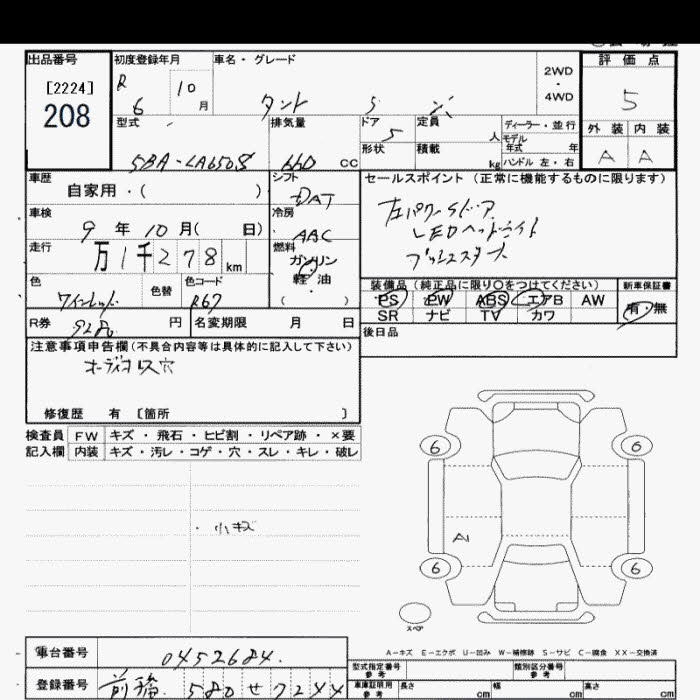 出品番号
[2224]
208
初度登録年月
R 6 10 月
車名・グレード
タント
2WD
・
4WD
評価点
5
型式
5BA-LA650S
排気量
660 CC
ドア
5
形状
定員 人
積載 kg
ディーラー・並行
モデル年式 年
ハンドル 左・右
外装 内装
A A
車歴
自家用・( )
シフト
DAT
セールスポイント(正常に機能するものに限ります)
左パワースドア
LEDヘッドライト
プッシュスタート
車検
9 年 10 月( 日)
冷房
AAC
走行
万 1 千 2 7 8 km
燃料
ガソリン
・
軽・油
( )
色
ワインレッド
色替
色コード
R67
装備品(純正品に限り○をつけてください)
PS PW ABS エアB AW
SR ナビ TV カワ
新車保証書
有・無
R券
9280 円
名変期限 月 日
後日品
注意事項申告欄(不具合内容等は具体的に記入して下さい)
オーディオレス穴
修復歴 有 [箇所 ]
検査員記入欄
FW キズ・飛石・ヒビ割・リペア跡・×要
内装 キズ・汚レ・コゲ・穴・スレ・キレ・破レ
・小キズ
6 6
A1
6 6
スペア
A-キズ E-エクボ U-凹み W-補修跡 S-サビ C-腐食 XX-交換済
車台番号
0452684.
登録番号
前橋 580 せ 7244
型式指定番号
参考
類別区分番号
参考
車庫証明用
参考
長さ cm
幅 cm
高さ cm